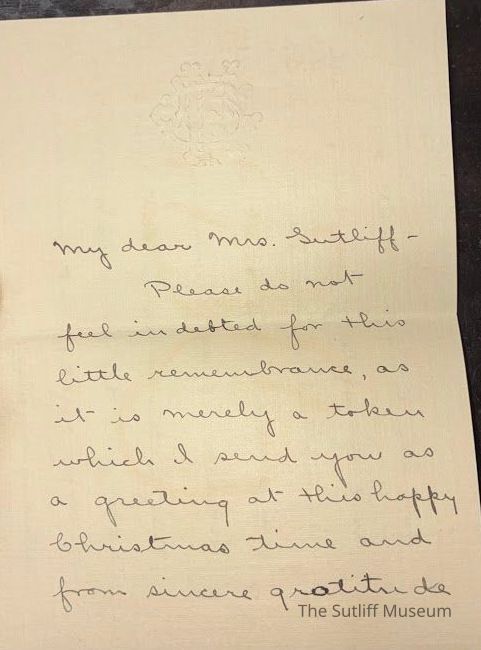 My dear Mrs. Sutliff -
Please do not
feel indebted for this
little remembrance, as
it is merely a token
which I send you as
a greeting at this happy
Christmas time and
from sincere gratitude
The Sutliff Museum